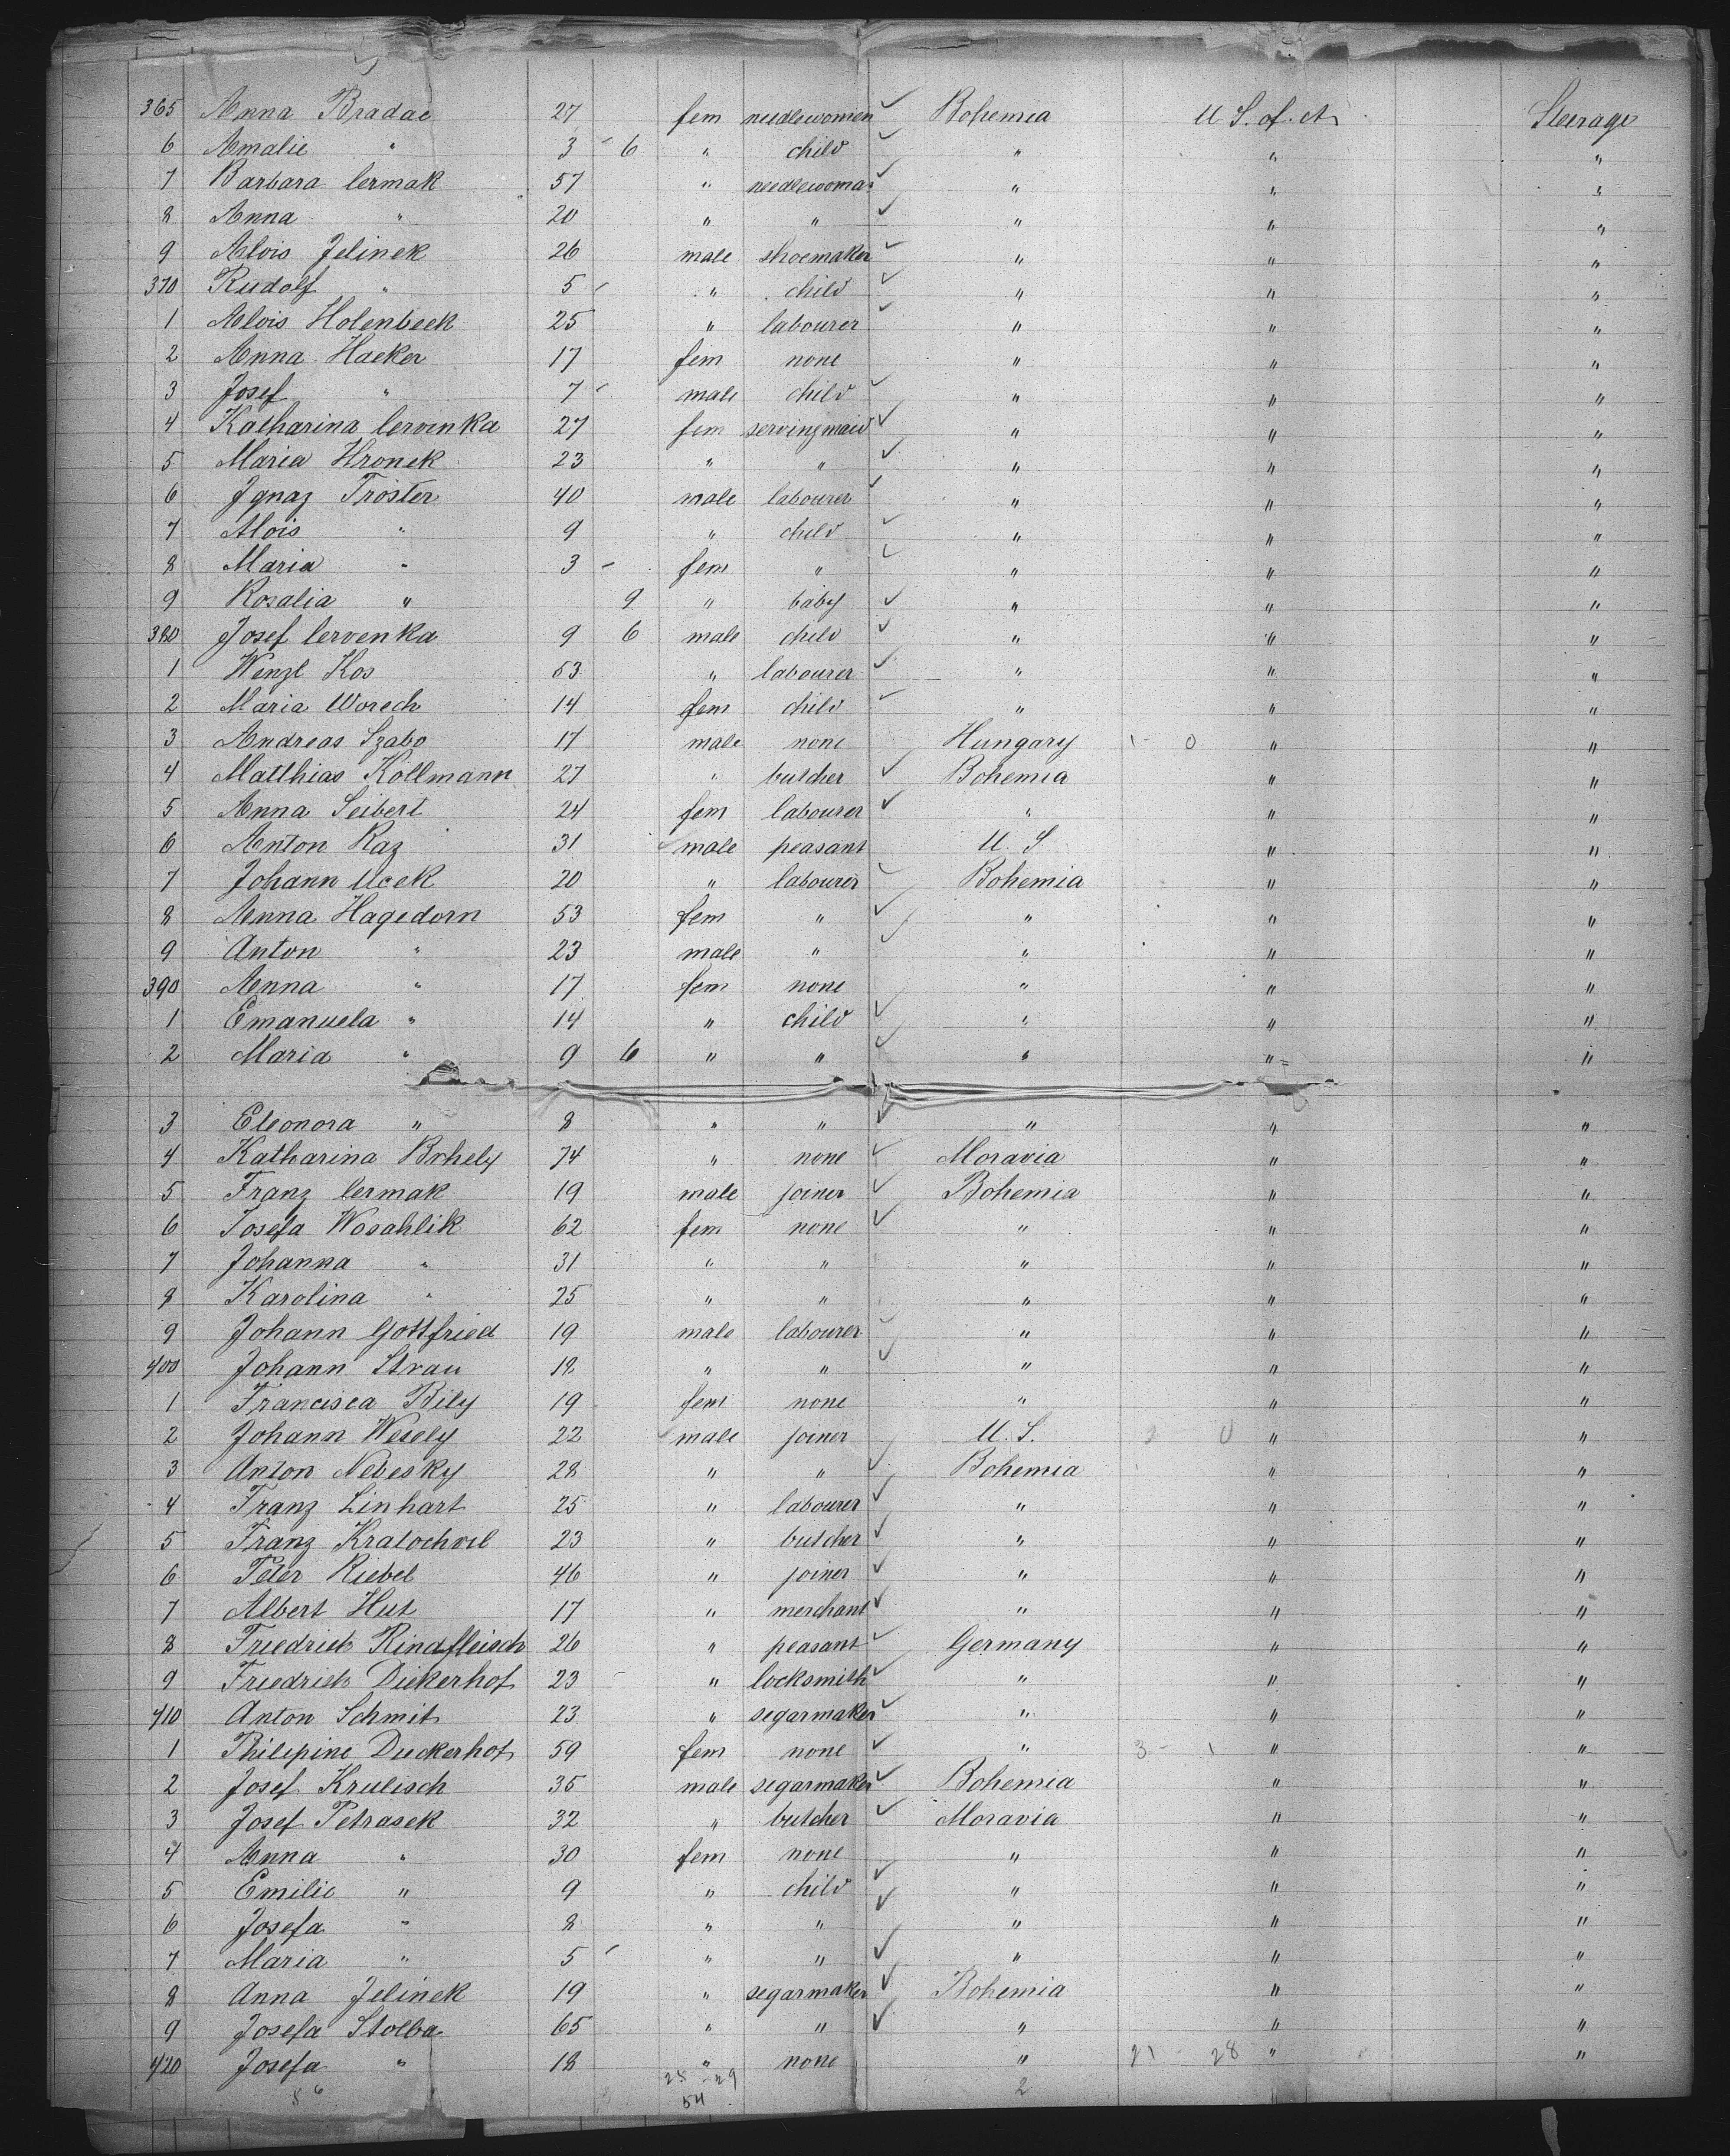 365 Anna Bradac 27 fem needlewomen ✓ Bohemia U. S. of. A. Steerage
6 Amalie " 3 - 6 " child ✓ " " "
7 Barbara Cermak 57 " needlewoman ✓ " " "
8 Anna " 20 " " ✓ " " "
9 Alois Jelinek 26 male shoemaker ✓ " " "
370 Rudolf " 5 " child ✓ " " "
1 Alois Holenbeek 25 " labourer ✓ " " "
2 Anna Hacker 17 fem none " " "
3 Josef " 7 male child ✓ " " "
4 Katharina Cervenka 27 fem servingmaid ✓ " " "
5 Maria Hronek 23 " " ✓ " " "
6 Ignaz Tröster 40 male labourer ✓ " " "
7 Alois " 9 " child ✓ " " "
8 Maria " 3 - fem " ✓ " " "
9 Rosalia " 9 " baby ✓ " " "
380 Josef Cervenka 9 6 male child ✓ " " "
1 Wenzl Kos 53 " labourer ✓ " " "
2 Maria Worech 14 fem child ✓ " " "
3 Andreas Szabo 17 male none Hungary 1 - 0 " "
4 Matthias Kollmann 27 " butcher ✓ Bohemia " "
5 Anna Seibert 24 fem labourer ✓ " " "
6 Anton Raz 31 male peasant U. S " "
7 Johann Ucek 20 " labourer ✓ Bohemia " "
8 Anna Hagedorn 53 fem " ✓ " " "
9 Anton " 23 male " ✓ " " "
390 Anna " 17 fem none " " "
1 Emanuela " 14 " child ✓ " " "
2 Maria " 9 6 " " ✓ " " "
3 Eleonora " 8 " " ✓ " " "
4 Katharina Brhely 74 " none ✓ Moravia " "
5 Franz Cermak 19 male joiner ✓ Bohemia " "
6 Josefa Wosahlik 62 fem none ✓ " " "
7 Johanna " 31 " " " " "
8 Karolina " 25 " " " " "
9 Johann Gottfried 19 male labourer ✓ " " "
400 Johann Strau 18 " " ✓ " " "
1 Francisca Bily 19 fem none " " "
2 Johann Wesely 22 male joiner U. S. 2 0 " "
3 Anton Nebesky 28 " " ✓ Bohemia " "
4 Franz Linhart 25 " labourer ✓ " " "
5 Franz Kratochvil 23 " butcher ✓ " " "
6 Peter Riebel 46 " joiner ✓ " " "
7 Albert Hut 17 " merchant ✓ " " "
8 Friedrich Rindfleisch 26 " peasant ✓ Germany " "
9 Friedrich Dickerhof 23 " locksmith ✓ " " "
410 Anton Schmit 23 " segarmaker ✓ " " "
1 Philipine Duckerhof 59 fem none ✓ " 3 - 1 " "
2 Josef Krulisch 35 male segarmaker ✓ Bohemia " "
3 Josef Petrasek 32 " butcher ✓ Moravia " "
4 Anna " 30 fem none " " "
5 Emilie " 9 " child ✓ " " "
6 Josefa " 8 " " ✓ " " "
7 Maria " 5 " " ✓ " " "
8 Anna Jelinek 19 " segarmaker ✓ Bohemia " "
9 Josefa Stolba 65 " " ✓ " " "
420 Josefa " 18 " none " 21 - 28 " "
56 25 - 29 2
54